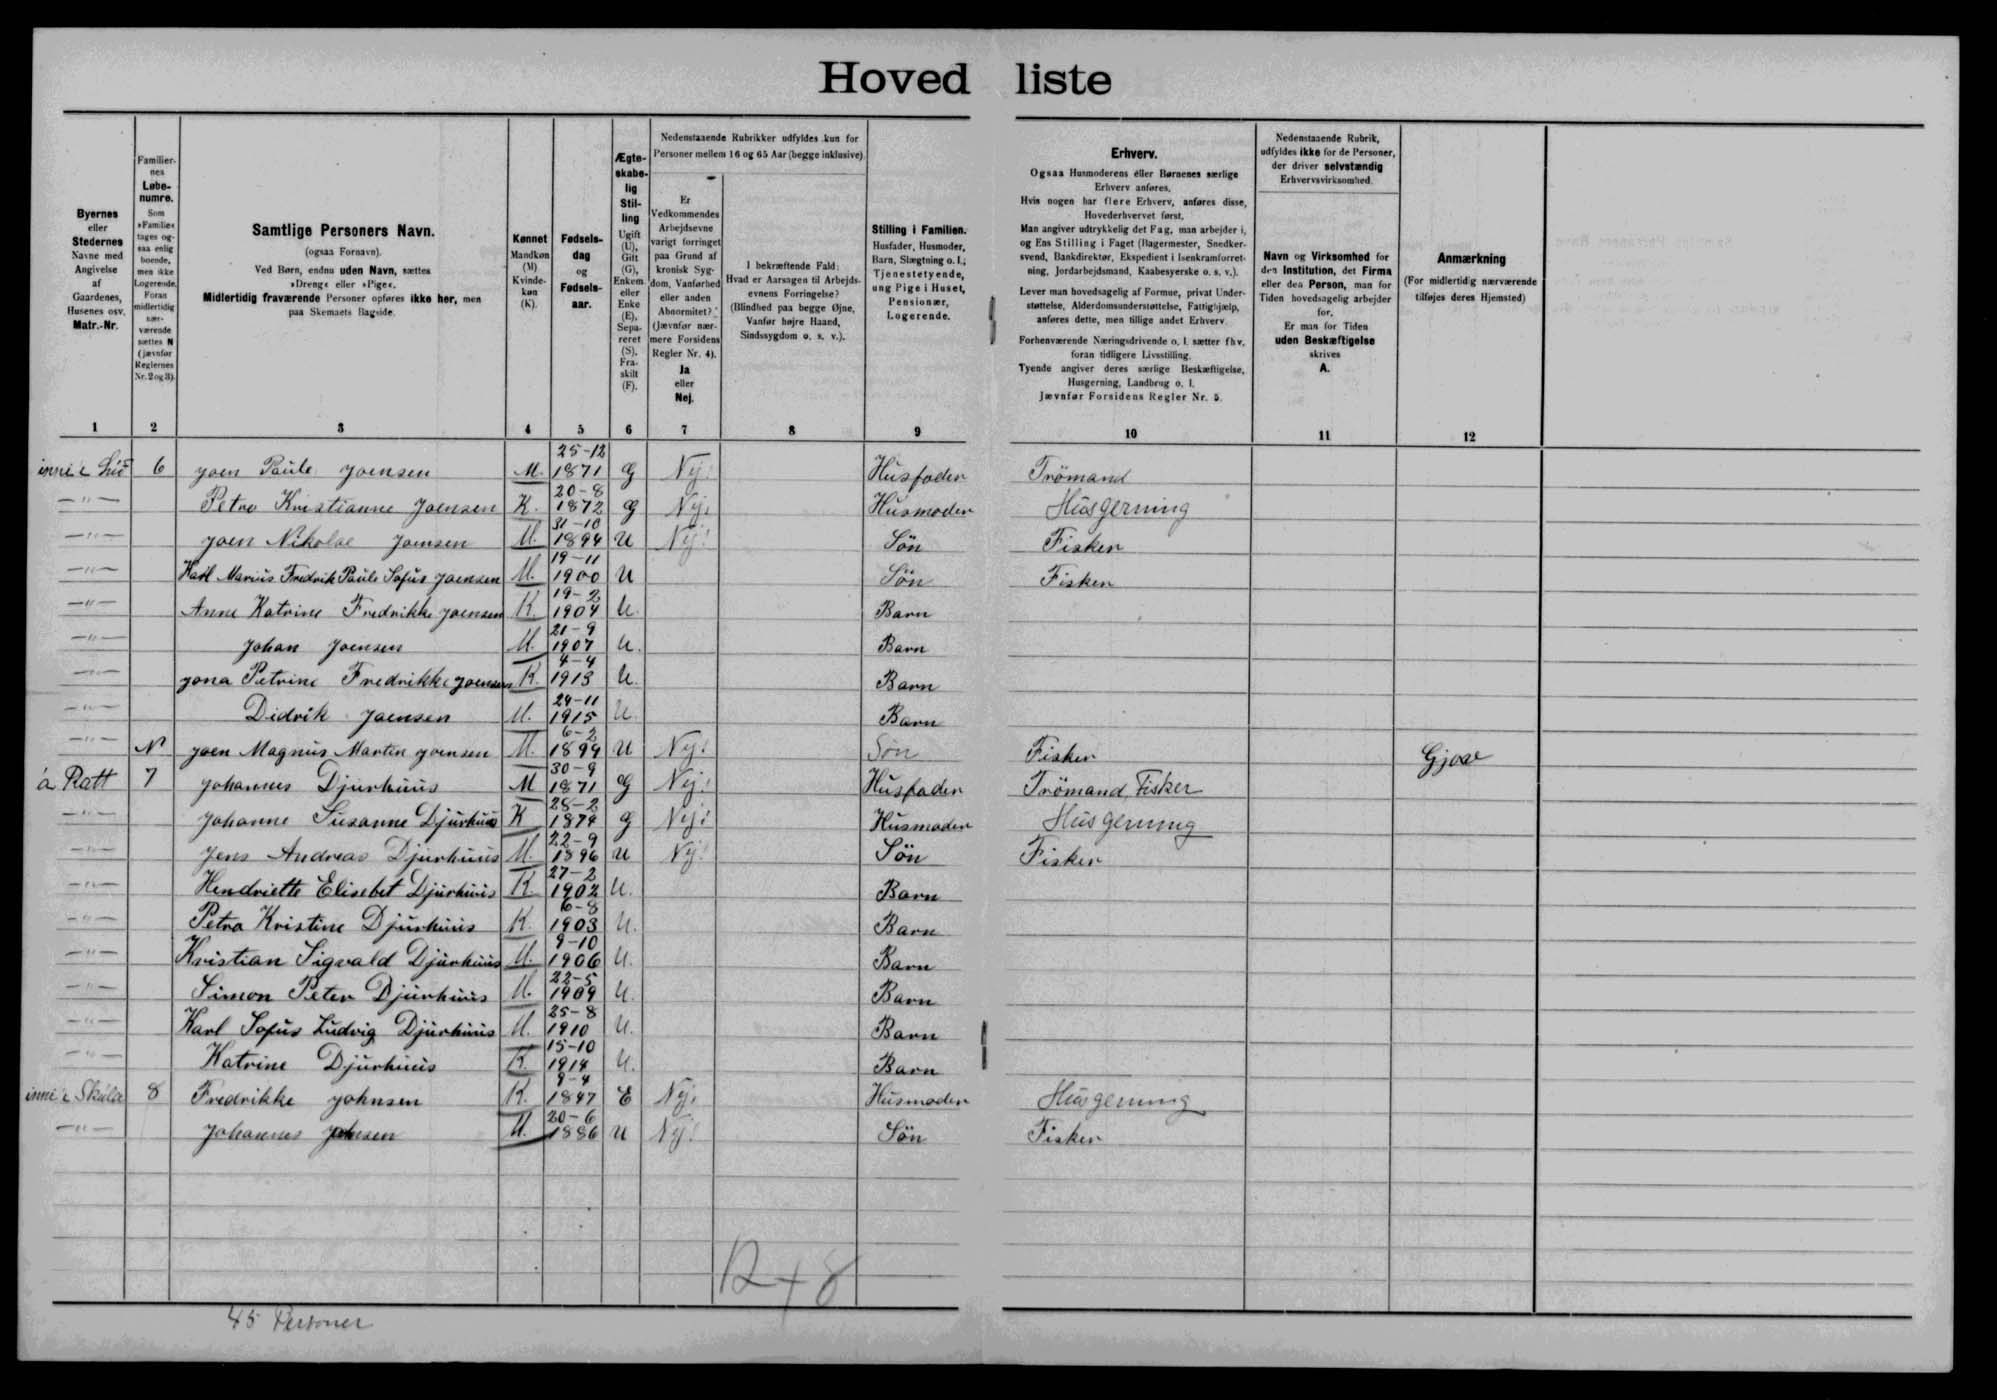 Hovedliste
Byernes eller Stedernes Navne med Angivelse af Gaardenes, Husenes osv. Matr.-Nr.
Familiernes Løbenumre. Som »Familie« tages ogsaa enlig boende, men ikke Logerende. Foran midlertidig nærværende sættes N (jævnfør Reglernes Nr. 2 og 3).
Samtlige Personers Navn. (ogsaa Fornavn). Ved Børn, endnu uden Navn, sættes »Dreng« eller »Pige«. Midlertidig fraværende Personer opføres ikke her, men paa Skemaets Bagside.
Kønnet Mandkøn (M) Kvindekøn (K).
Fødselsdag og Fødselsaar.
Ægteskabelig Stilling Ugift (U), Gift (G), Enkem. eller Enke (E), Separeret (S), Fraskilt (F).
Nedenstaaende Rubrikker udfyldes kun for Personer mellem 16 og 65 Aar (begge inklusive).
Er Vedkommendes Arbejdsevne varigt forringet paa Grund af kronisk Sygdom, Vanførhed eller anden Abnormitet? (Jævnfør nærmere Forsidens Regler Nr. 4). Ja eller Nej.
I bekræftende Fald: Hvad er Aarsagen til Arbejdsevnens Forringelse? (Blindhed paa begge Øjne, Vanfør højre Haand, Sindssygdom o. s. v.).
Stilling i Familien. Husfader, Husmoder, Barn, Slægtning o. l.; Tjenestetyende, ung Pige i Huset, Pensionær, Logerende.
Erhverv.
Ogsaa Husmoderens eller Børnenes særlige Erhverv anføres.
Hvis nogen har flere Erhverv, anføres disse, Hovederhvervet først.
Man angiver udtrykkelig det Fag, man arbejder i, og Ens Stilling i Faget (Bagermester, Snedkersvend, Bankdirektør, Ekspedient i Isenkramforretning, Jordarbejdsmand, Kaabesyerske o. s. v.).
Lever man hovedsagelig af Formue, privat Understøttelse, Alderdomsunderstøttelse, Fattighjælp, anføres dette, men tillige andet Erhverv.
Forhenværende Næringsdrivende o. l. sætter fhv. foran tidligere Livsstilling.
Tyende angiver deres særlige Beskæftigelse, Husgerning, Landbrug o. l.
Jævnfør Forsidens Regler Nr. 5.
Nedenstaaende Rubrik, udfyldes ikke for de Personer, der driver selvstændig Erhvervsvirksomhed.
Navn og Virksomhed for den Institution, det Firma eller den Person, man for Tiden hovedsagelig arbejder for.
Er man for Tiden uden Beskæftigelse skrives A.
Anmærkning (For midlertidig nærværende tilføjes deres Hjemsted)
1 2 3 4 5 6 7 8 9 10 11 12
6 Joen Paule Joensen M. 25-12 1871 G Nej. Husfader Trömand
-"- Petra Kristianne Joensen K. 20-8 1872 G Nej. Husmoder Husgerning
-"- Joen Nikolae Joensen M. 31-10 1894 U Nej. Sön Fisker
-"- Karl Marius Fredrik Paule Sofus Joensen M. 19-11 1900 U Sön Fisker
-"- Anne Katrine Fredrikke Joensen K. 19-2 1904 U. Barn
-"- Johan Joensen M. 21-9 1907 U. Barn
-"- Jona Petrine Fredrikke Joensen K. 4-4 1913 U. Barn
-"- Didrik Joensen M. 24-11 1915 U Barn
-"- N Joen Magnus Martin Joensen M. 6-2 1899 U Nej. Sön Fisker Gjov
á Ratt 7 Johannes Djurhuus M 30-9 1871 G Nej. Husfader Trömand, Fisker
-"- Johanne Susanne Djurhuus K 28-2 1874 G Nej. Husmoder Husgerning
-"- Jens Andreas Djurhuus M. 22-9 1896 U Nej. Sön Fisker
-"- Hendriette Elisebet Djurhuus K. 27-2 1902 U. Barn
-"- Petra Kristine Djurhuus K. 6-8 1903 U. Barn
-"- Kristian Sigvald Djurhuus M. 9-10 1906 U. Barn
-"- Simon Peter Djurhuus M. 22-5 1909 U. Barn
-"- Karl Sofus Ludvig Djurhuus M. 25-8 1910 U. Barn
-"- Katrine Djurhuus K. 15-10 1914 U. Barn
inni í Skúla 8 Fredrikke Johnsen K. 9-4 1847 E Nej. Husmoder Husgerning
-"- Johannes Johnsen M. 20-6 1886 U Nej. Sön Fisker
12+8
45 Personer